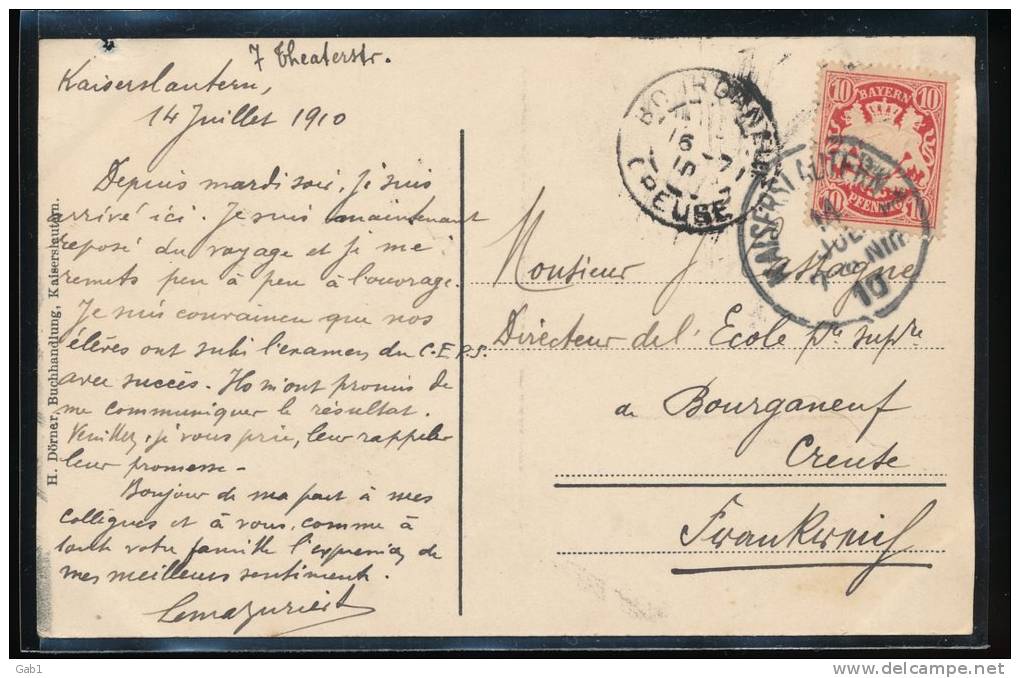 7 Theaterstr.
Kaiserslautern,
14 Juillet 1910
Depuis mardi soir, je suis
arrivé ici. Je suis maintenant
reposé du voyage et je me
remets peu à peu à l'ouvrage.
Je suis convaincu que nos
élèves ont subi l'examen du C.E.P.S.
avec succès. Ils m'ont promis de
me communiquer le résultat.
Veuillez, je vous prie, leur rappeler
leur promesse -
Bonjour de ma part à mes
collègues et à vous, comme à
toute votre famille l'expression de
mes meilleurs sentiments.
H. Dörner, Buchhandlung, Kaiserslautern.
BOURGANEUF
16
10
CREUSE
BAYERN
10 10
10 PFENNIG 10
KAISERSLAUTERN
14
JUL
10
Monsieur
Directeur de l'Ecole pre supre
de Bourganeuf
Creuse
Frankreich
Gab1
delcampe.net